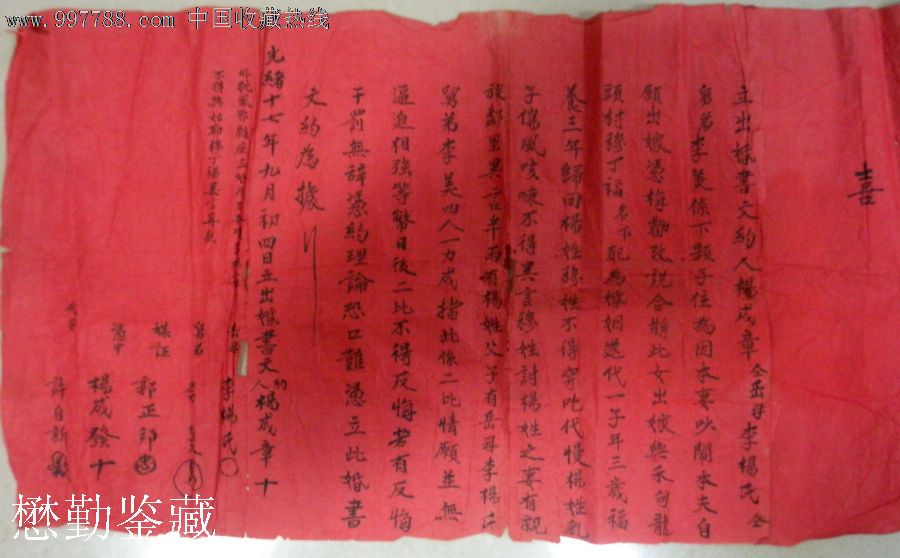 www.997788.com 中国收藏热线
喜
立出嫁書文約人楊成章 仝岳母李楊氏 仝
舅弟李美係下顥子住為因本妻吵鬧本夫自
願出嫁憑梅勸改説合將此女出嫁與禾甸龍
頭村穆丁福名下配為婚姻遂代一子年三歲福
養三年歸回楊姓穆姓不得穿吃代慢楊姓乳
子傷風咳嗽不得異言穆姓討楊姓之妻有親
族鄰里異言半雨有楊姓父子有岳母李楊氏
舅弟李美四人一力成擋此係二比情願並無
逼迫相強等幣日後二比不得反悔若有反悔
干罰無辭憑約理論恐口難憑立此婚書
文約為據
光緒十七年九月初四日立出嫁書文約人楊成章十
不得與
岳母 李楊氏
舅弟 李美
媒証 郭正邦
憑中 楊成發十
許自新
懋勤鉴藏